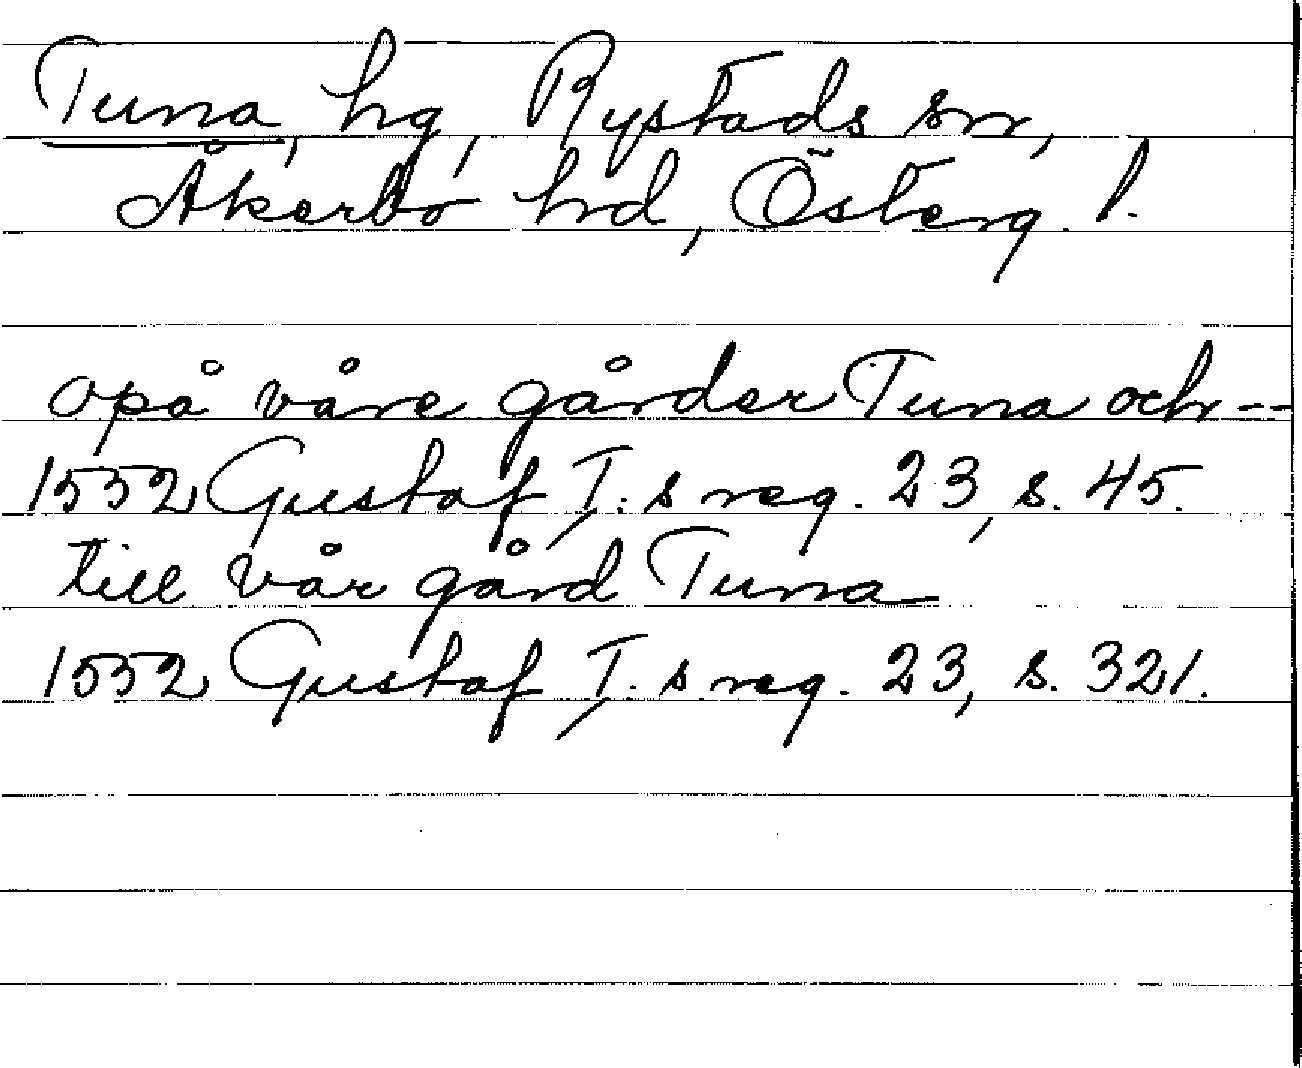 Tuna, hg, Rystads sn,
Åkerbo hd, Österg. l.
opå våre gårder Tuna och --
1552 Gustaf I: s reg. 23, s. 45.
till vår gård Tuna
1552 Gustaf I. s reg. 23, s. 321.